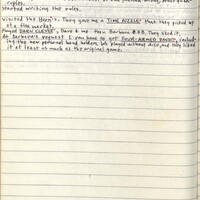 rupees.
Started writing the rules.
Visited the Born's. They gave me a TIME PUZZLE that they picked up
at a flea market.
Played DARN CLEVER, Dave & me then Barbara &
At Barbara's request I ran home to get FOUR-ARMED BANDIT, includ-
ing the new personal hand holders. We played without dice, and they liked
it at least as much as the original game.